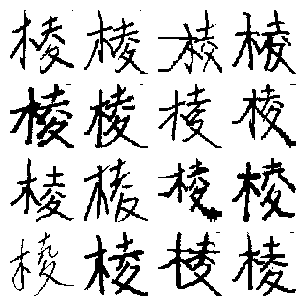 棱棱棱棱
棱棱棱棱
棱棱棱棱
棱棱棱棱